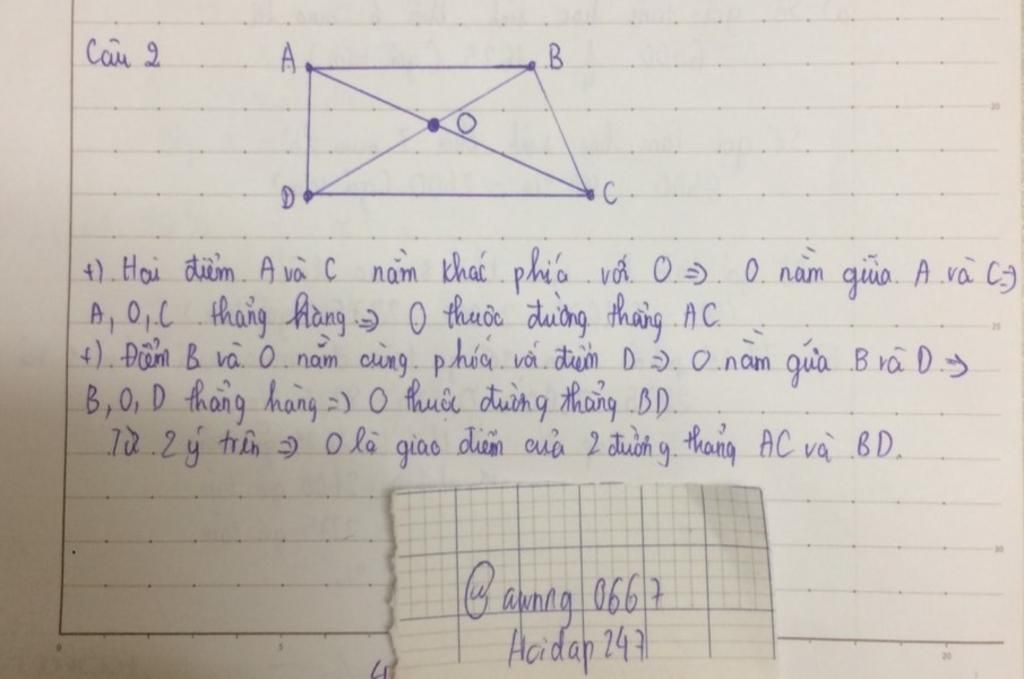 Câu 2
A B
O
D C
+) Hai điểm A và C nằm khác phía với O => O nằm giữa A và C =>
A, O, C thẳng hàng => O thuộc đường thẳng AC.
+) Điểm B và O nằm cùng phía với điểm D => O nằm giữa B và D =>
B, O, D thẳng hàng => O thuộc đường thẳng BD.
Từ 2 ý trên => O là giao điểm của 2 đường thẳng AC và BD.
@ awnng 0667
Hoidap 247